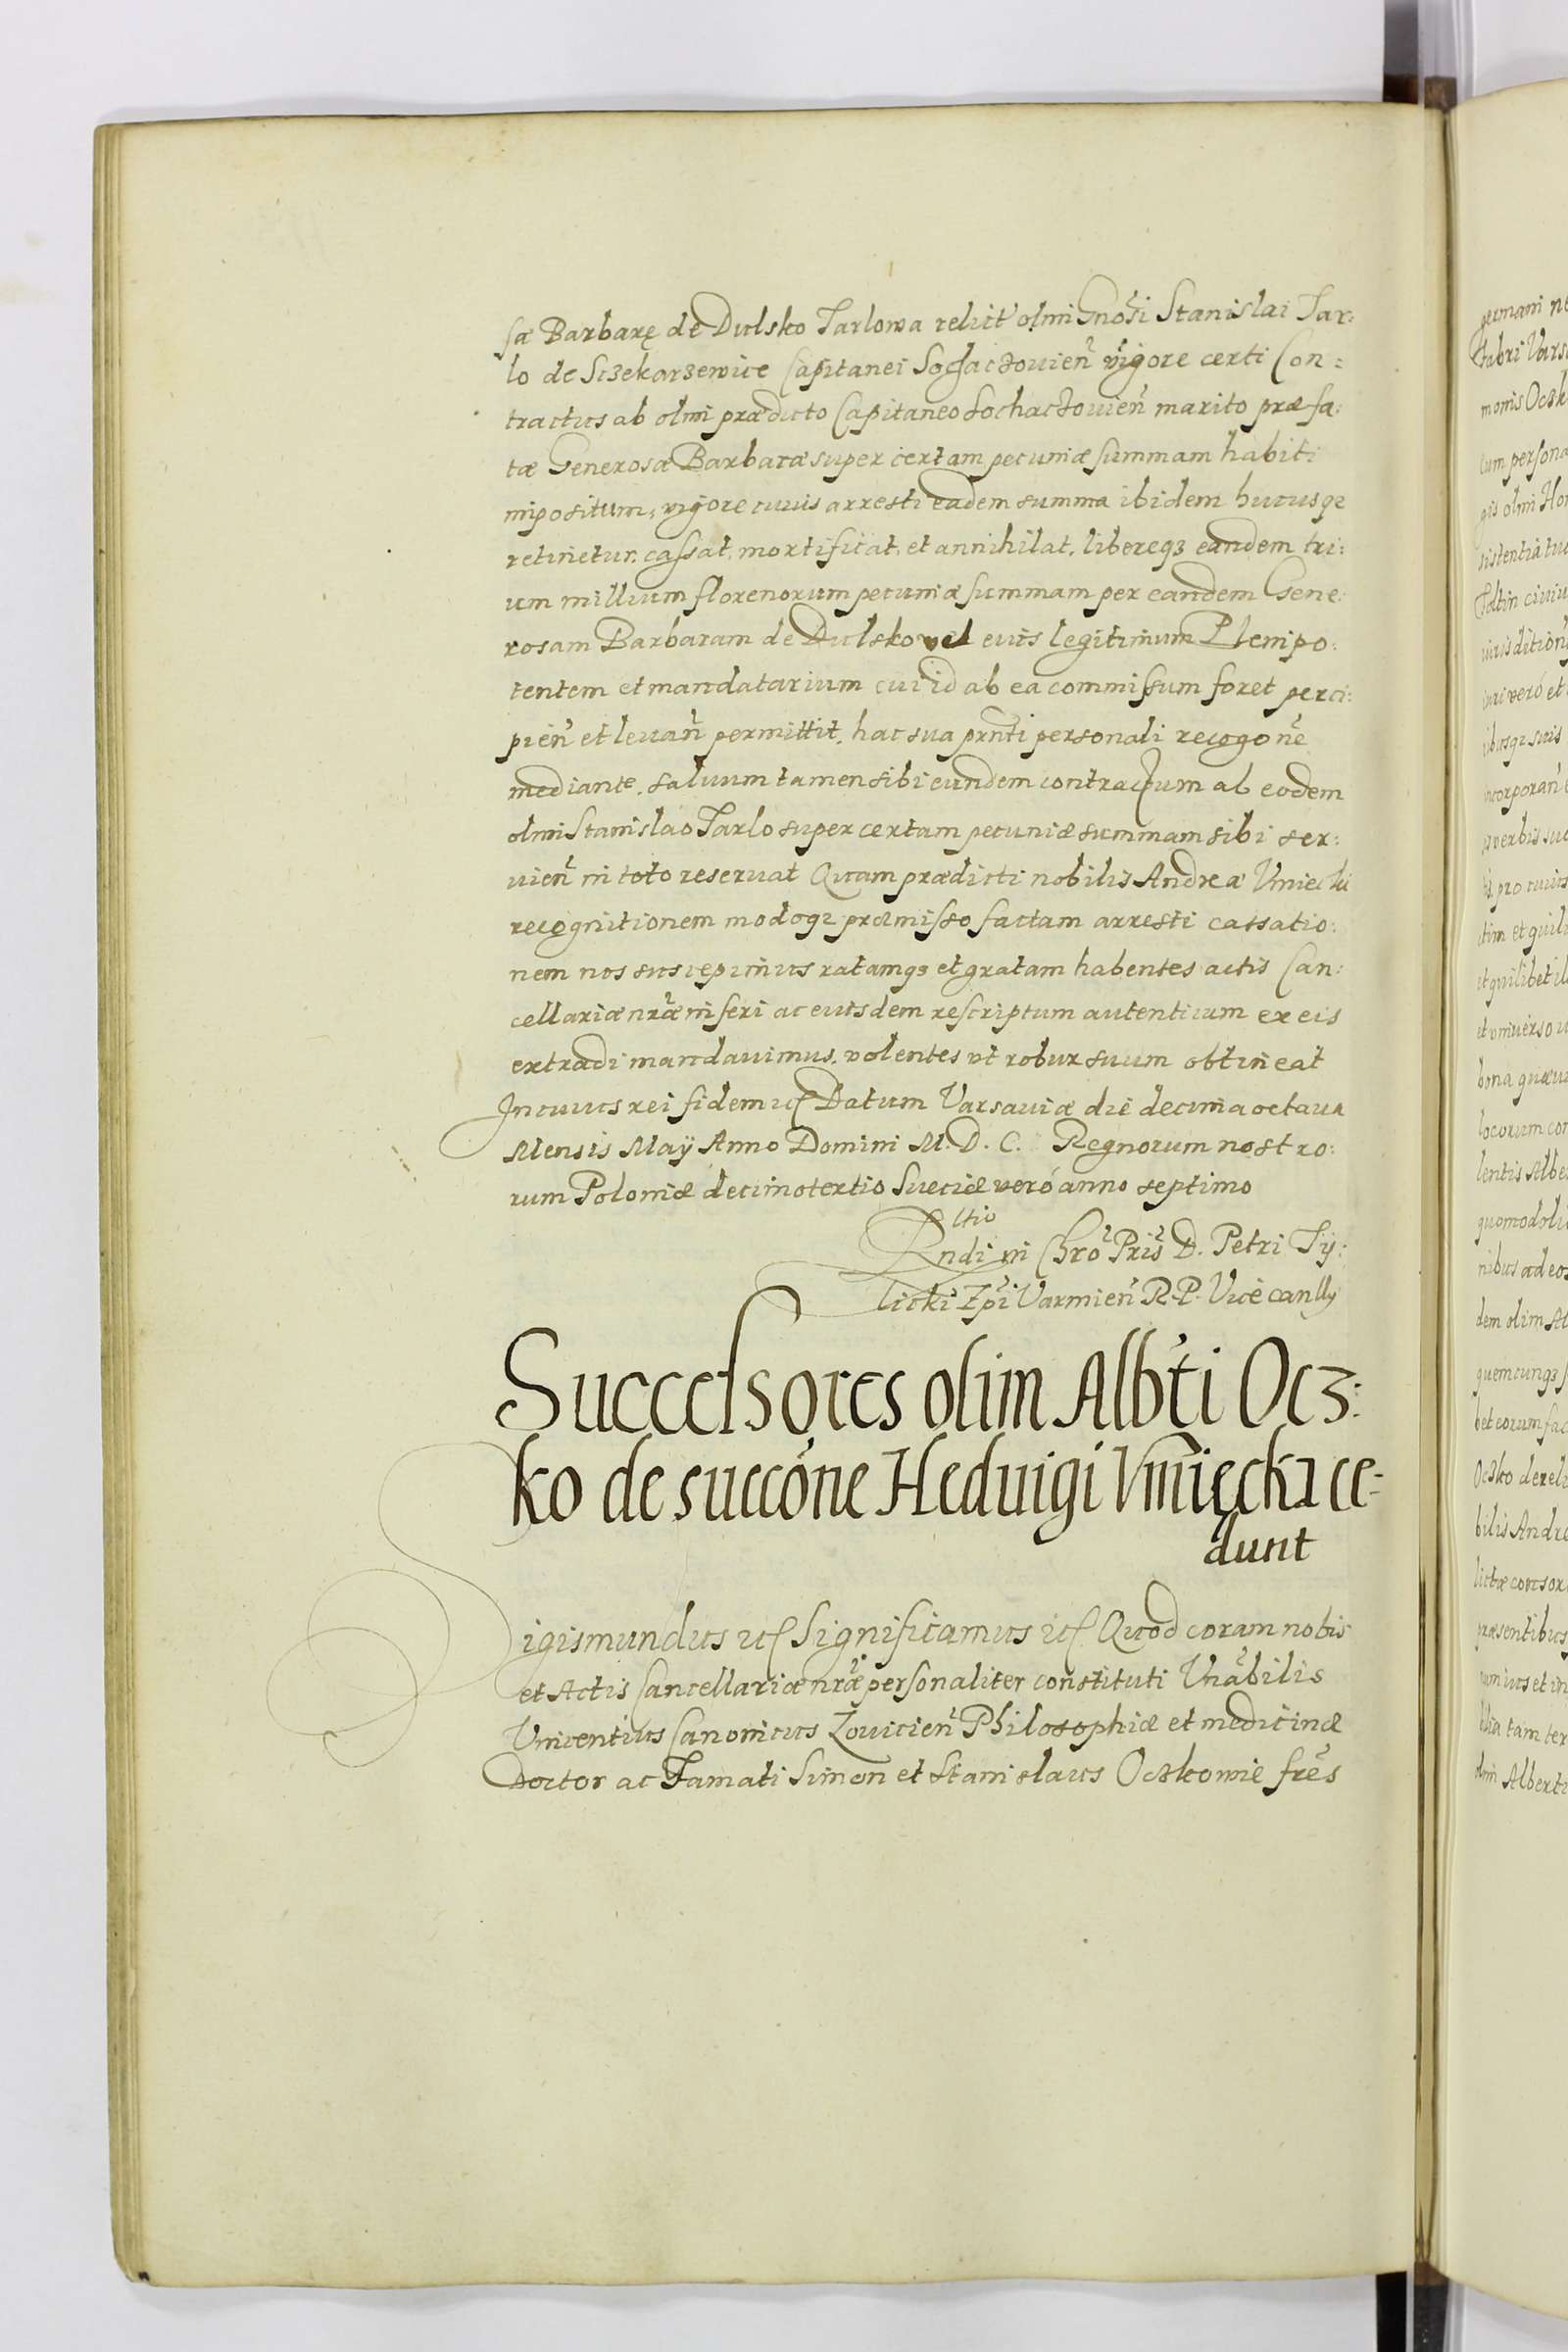 sæ Barbaræ de Dulsko Tarlowa relict olim Gnosi Stanislai Tar:
lo de Sczekarzewice Capitanei Sochaczouien̄ vigore certi Con:
tractus ab olim prædicto Capitaneo Sochaczouien̄ marito præfa:
tæ Generosæ Barbaræ super certam pecuniæ summam habiti
impositum, vigore cuius arresti eadem summa ibidem hucusqȝ
retinetur, cassat, mortificat, et annihilat, libereqȝ eandem tri:
um millium florenorum pecuniæ summam per eandem Gene:
rosam Barbaram de Dulsko vel eius legitimum Plenipo:
tentem et mandatarium cui id ab ea commissum foret perci:
pien̄ et leuan̄ permittit, hac sua prn̄ti personali recogōne
mediante, saluum tamen sibi eundem contractum ab eodem
olim Stanislao Tarlo super certam pecuniæ summam sibi ser:
uien̄ in toto reseruat Quam prædicti nobilis Andreæ Vmiecki
recognitionem modoqȝ præmisso factam arresti cassatio:
nem nos suscepimus ratamqȝ et gratam habentes actis Can:
cellariæ nræ inseri ac eiusdem rescriptum autenticum ex eis
extradi mandauimus, volentes vt robur suum obtineat
In cuius rei fidem ec Datum Varsauiæ die decima octaua
Mensis Maÿ Anno Domini M. D. C. Regnorum nostro:
rum Poloniæ decimotertio Sueciæ veró anno septimo
Rltio
Rndi in Chrō Pris̄ D. Petri Ty:
licki Epī Varmien̄ R. P. Vice canlly
Successores olim Albti Ocz:
ko de succōne Heduigi Vmięcka ce-
dunt
Sigismundus ec Significamus ec Quod coram nobis
et Actis Cancellariæ nræ personaliter constituti Vnābilis
Vincentius Canonicus Louicien̄ Philosophiæ et medicinæ
Doctor ac Famati Simon et Stanislaus Oczkowie fres̄